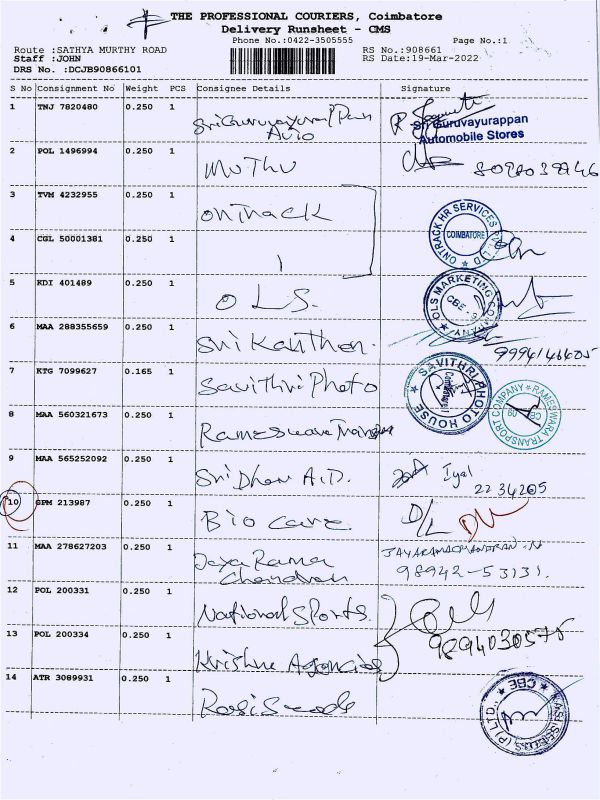 THE PROFESSIONAL COURIERS, Coimbatore
Delivery Runsheet - CMS
Phone No.:0422-3505555 Page No.:1
Route :SATHYA MURTHY ROAD RS No.:908661
Staff :JOHN RS Date:19-Mar-2022
DRS No. :DCJB90866101
S No Consignment No Weight PCS Consignee Details Signature
1 TNJ 7820480 0.250 1 Sri Guruvayurappan Auto
Sri Guruvayurappan
Automobile Stores
2 POL 1496994 0.250 1 Muthu
3 TVM 4232955 0.250 1 ontrack
ONTRACK HR SERVICES PVT. LTD
COIMBATORE
4 CGL 50001381 0.250 1
5 KDI 401489 0.250 1 OLS.
OLS MARKETING COMPANY
CBE - 9
6 MAA 288355659 0.250 1 Sri Kanthan. 9994146405
7 KTG 7099627 0.165 1 Savithri Photo
SAVITHRI PHOTO HOUSE
8 MAA 560321673 0.250 1 Rameswara Transport
RAMESWARA TRANSPORT COMPANY
9 MAA 565252092 0.250 1 Sri Dhan A.D. Iyal
2234205
10 GPM 213987 0.250 1 Bio care D/L
11 MAA 278627203 0.250 1 Jaya Rama JAYARAMACHANDRAN.N
Chandran 98942-53131.
12 POL 200331 0.250 1 National Sports.
9894030575
13 POL 200334 0.250 1 Krishna Agencies
14 ATR 3089931 0.250 1 Rasi Seeds
RASI SEEDS (P) LTD., CBE